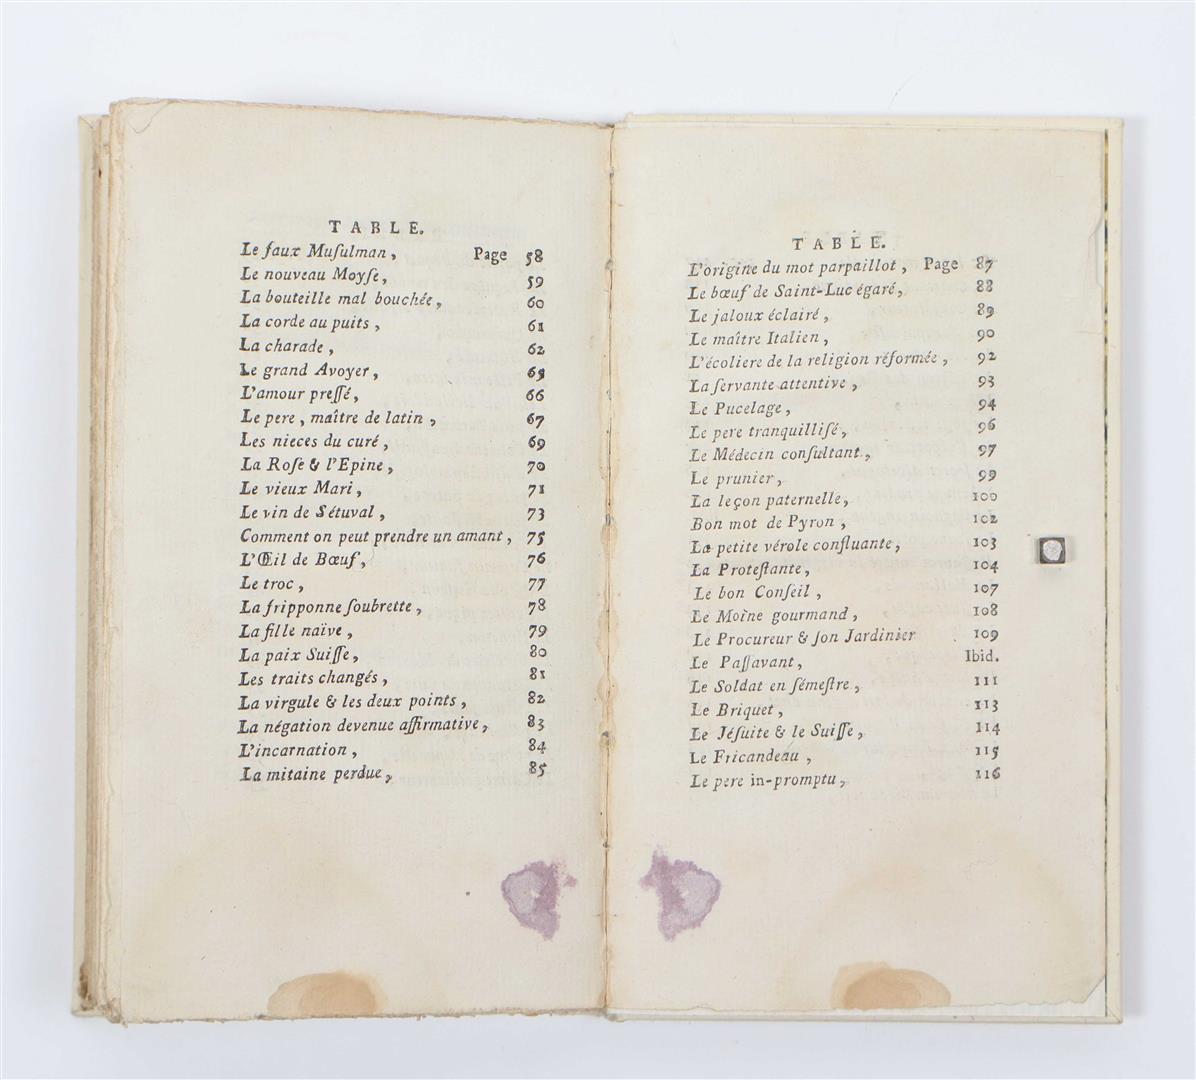 TABLE.
Le faux Muſulman, Page 58
Le nouveau Moyſe, 59
La bouteille mal bouchée, 60
La corde au puits, 61
La charade, 62
Le grand Avoyer, 65
L'amour preſſé, 66
Le pere, maître de latin, 67
Les nieces du curé, 69
La Roſe & l'Epine, 70
Le vieux Mari, 71
Le vin de Sétuval, 73
Comment on peut prendre un amant, 75
L'Œil de Bœuf, 76
Le troc, 77
La fripponne ſoubrette, 78
La fille naïve, 79
La paix Suiſſe, 80
Les traits changés, 81
La virgule & les deux points, 82
La négation devenue affirmative, 83
L'incarnation, 84
La mitaine perdue, 85
TABLE.
L'origine du mot parpaillot, Page 87
Le bœuf de Saint-Luc égaré, 88
Le jaloux éclairé, 89
Le maître Italien, 90
L'écoliere de la religion réformée, 92
La ſervante attentive, 93
Le Pucelage, 94
Le pere tranquilliſé, 96
Le Médecin conſultant, 97
Le prunier, 99
La leçon paternelle, 100
Bon mot de Pyron, 102
La petite vérole confluante, 103
La Proteſtante, 104
Le bon Conſeil, 107
Le Moine gourmand, 108
Le Procureur & ſon Jardinier 109
Le Paſſavant, Ibid.
Le Soldat en ſémeſtre, 111
Le Briquet, 113
Le Jéſuite & le Suiſſe, 114
Le Fricandeau, 115
Le pere in-promptu, 116